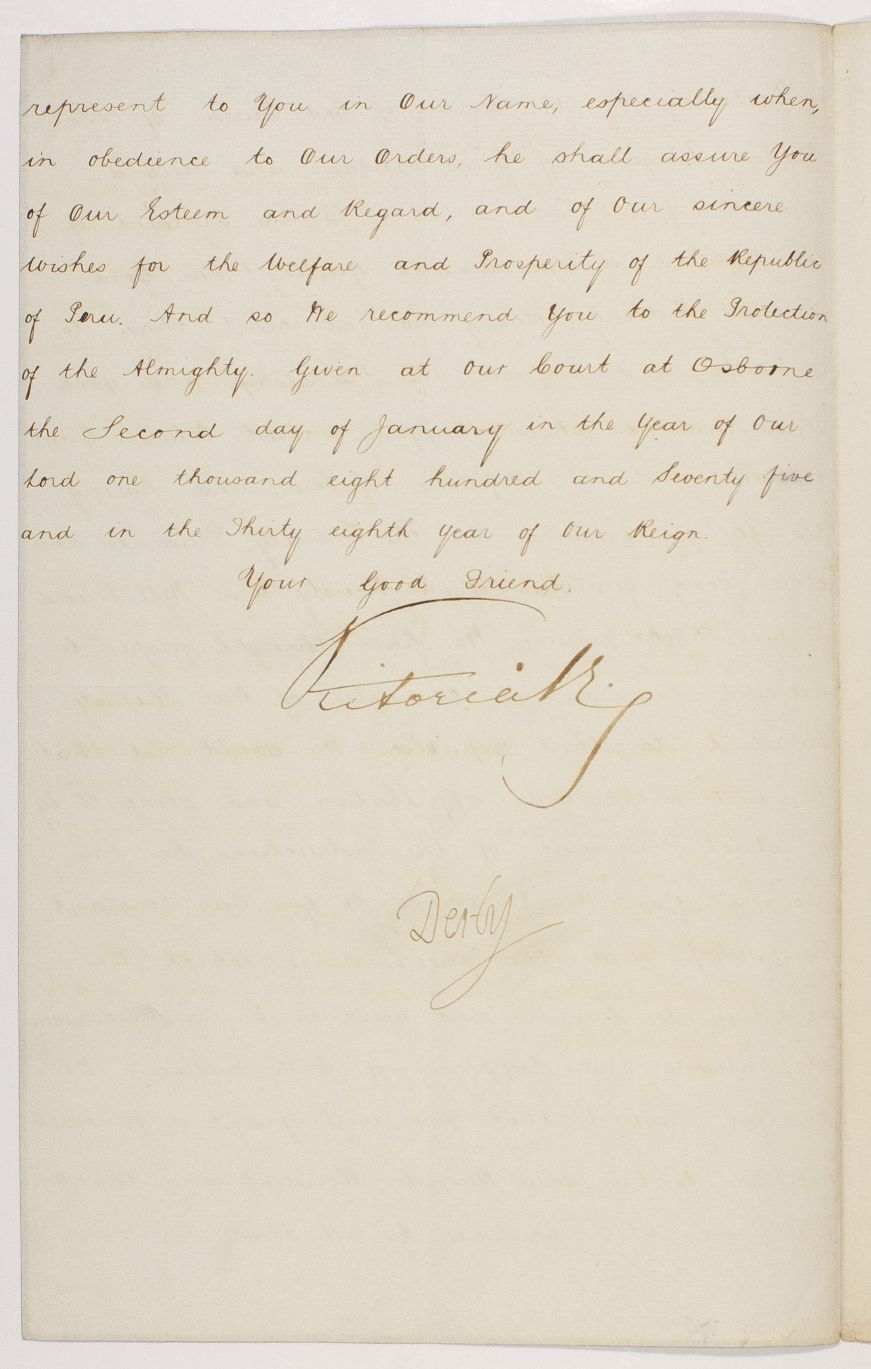 represent to You in Our Name, especially when,
in obedience to Our Orders, he shall assure You
of Our Esteem and Regard, and of Our sincere
Wishes for the Welfare and Prosperity of the Republic
of Peru. And so We recommend You to the Protection
of the Almighty. Given at Our Court at Osborne
the Second day of January in the Year of Our
Lord one thousand eight hundred and Seventy five
and in the Thirty eighth Year of Our Reign.
Your Good Friend.
Victoria R.
Derby